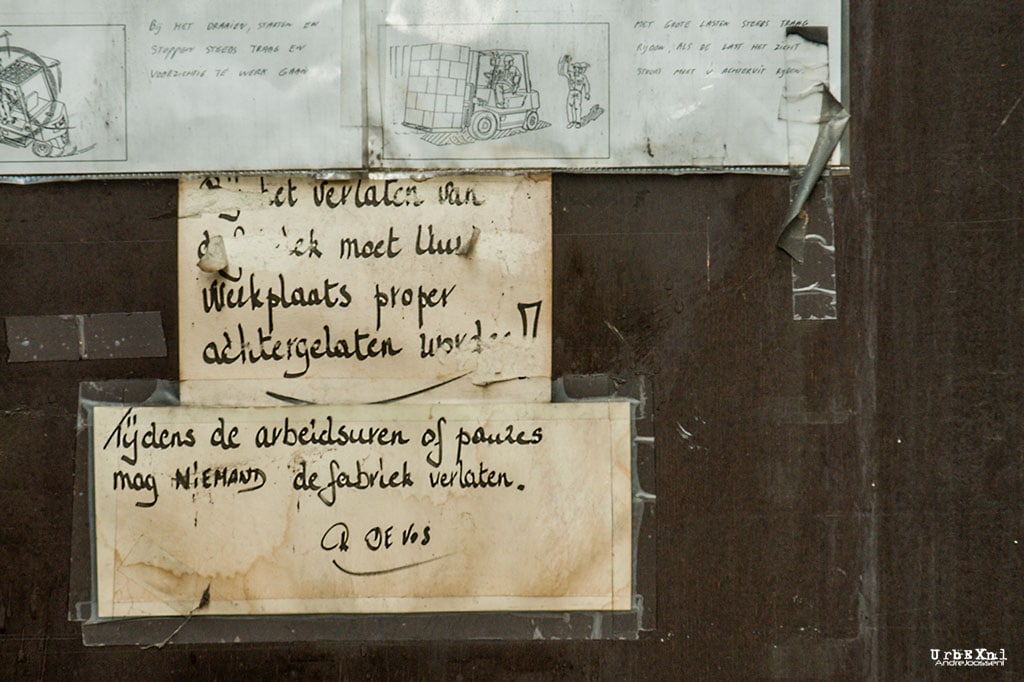 Bij HET DRAAIEN, STARTEN EN
STOPPEN STEEDS TRAAG EN
VOORZICHTIG TE WERK GAAN
MET GROTE LASTEN STEEDS TRAAG
RIJDEN, ALS DE LAST HET ZICHT
STOORT MOET U ACHTERUIT RIJDEN.
het verlaten van
moet
Werkplaats proper
achtergelaten
Tijdens de arbeidsuren of pauzes
mag NIEMAND de fabriek verlaten.
DE VOS
UrbEXnl
AndreJoosse.nl